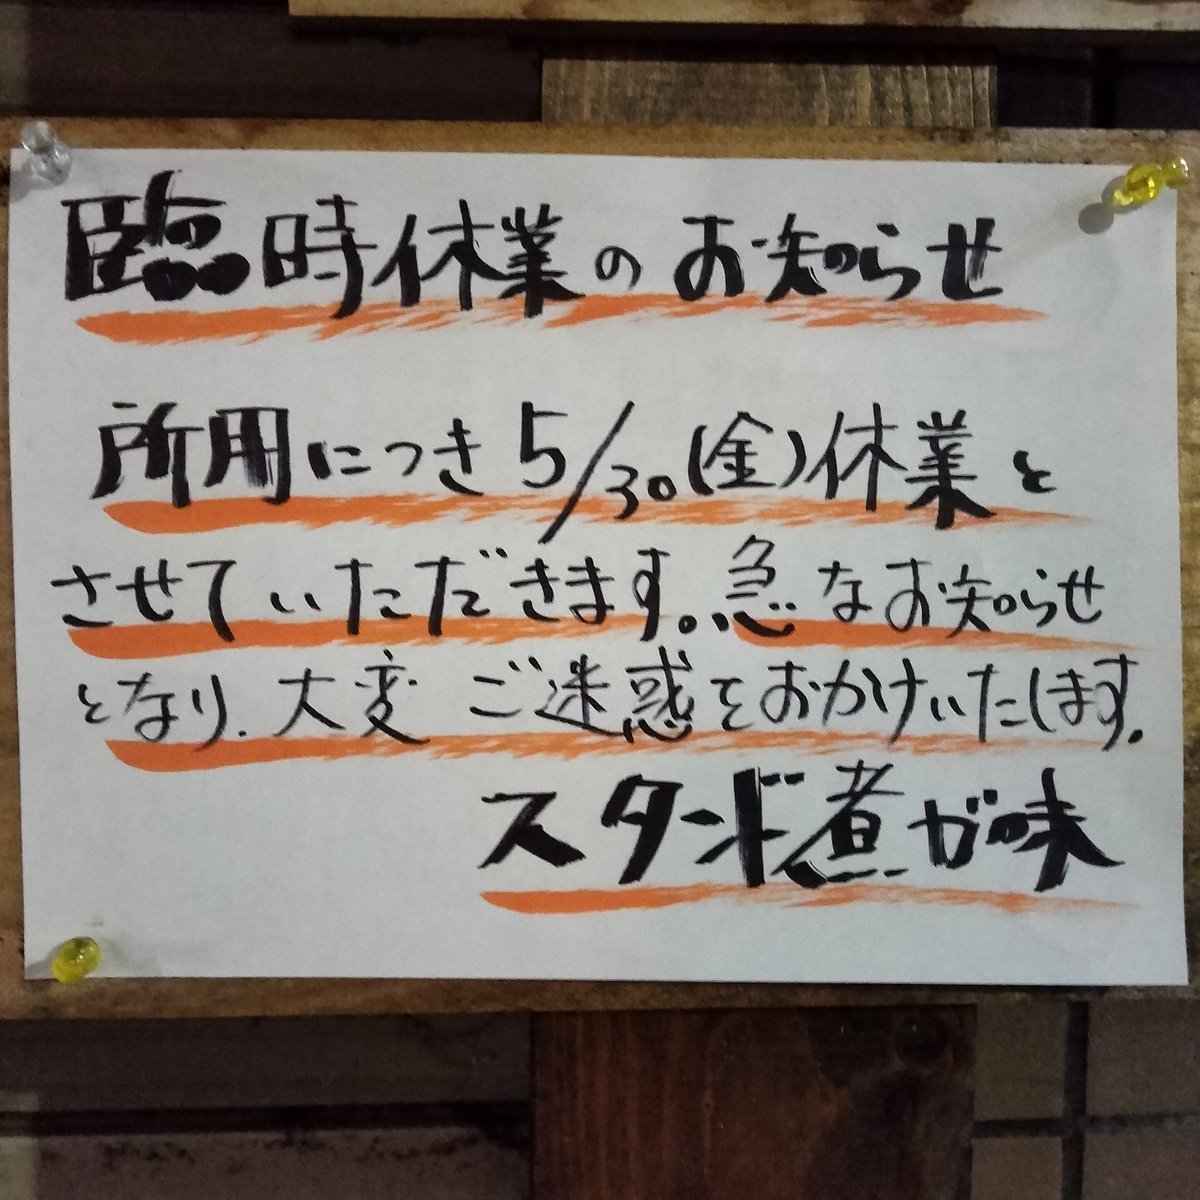 臨時休業のお知らせ
所用につき5/30(金)休業と
させていただきます。急なお知らせ
となり、大変ご迷惑をおかけいたします。
スタンド煮ガ味